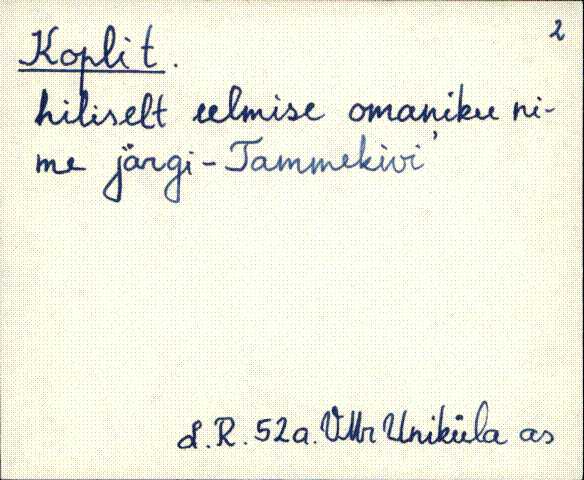 2
Koplit.
hiliselt eelmise omaniku ni-
me järgi - Tammekivi'
L.R. 52a. VMr Uniküla as